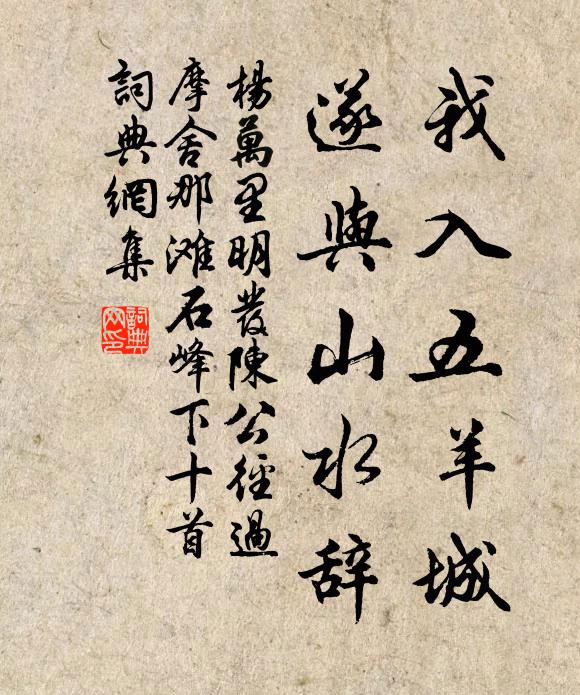 我入五羊城
遂與山水辞
楊萬里明發陳公徑過
摩舍那滩石峰下十首
詞典網集
詞典网印